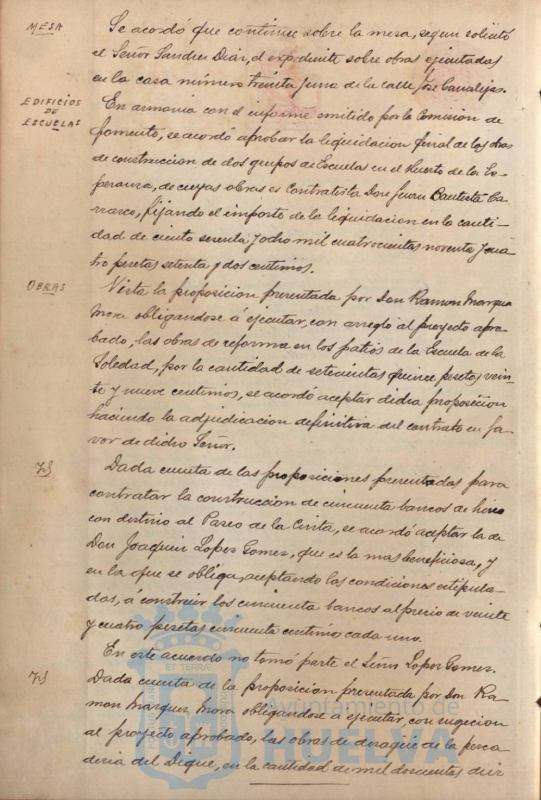 MESA
Se acordó que continue sobre la mesa, segun solicitó
el Señor Sanchez Diaz, el expediente sobre obras ejecutadas
en la casa número treinta y uno de la calle José Canalejas.
EDIFICIOS
DE
ESCUELAS
En armonia con el informe emitido por la Comision de
fomento, se acordó aprobar la liquidacion final de las obras
de construccion de dos grupos de Escuelas en el Huerto de la Es-
peranza, de cuyas obras es Contratista Don Juan Bautista Ca-
rrasco, fijando el importe de la liquidacion en la canti-
dad de ciento setenta y ocho mil cuatrocientas noventa y cua-
tro pesetas setenta y dos centimos.
OBRAS
Vista la proposicion presentada por Don Ramon Marquez
Mora obligandose á ejecutar, con arreglo al proyecto apro-
bado, las obras de reforma en los patios de la Escuela de la
Soledad, por la cantidad de setecientas quince pesetas vein-
te y nueve centimos, se acordó aceptar dicha proposicion
haciendo la adjudicacion definitiva del contrato en fa-
vor de dicho Señor.
Dada cuenta de las proposiciones presentadas para
contratar la construccion de cincuenta bancos de hierro
con destino al Paseo de la Cinta, se acordó aceptar la de
Don Joaquin Lopez Gomez, que es la mas beneficiosa, y
en la que se obliga, aceptando las condiciones estipula-
das, á construir los cincuenta bancos al precio de veinte
y cuatro pesetas cincuenta centimos cada uno.
En este acuerdo no tomó parte el Señor Lopez Gomez.
Dada cuenta de la proposicion presentada por Don Ra-
mon Marquez Mora obligandose á ejecutar, con sugecion
al proyecto aprobado, las obras de desagüe de la pesca-
deria del Dique, en la cantidad de mil doscientas diez
Ayuntamiento de
HUELVA